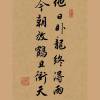 他日卧龍終得雨
今朝放鶴且衝天